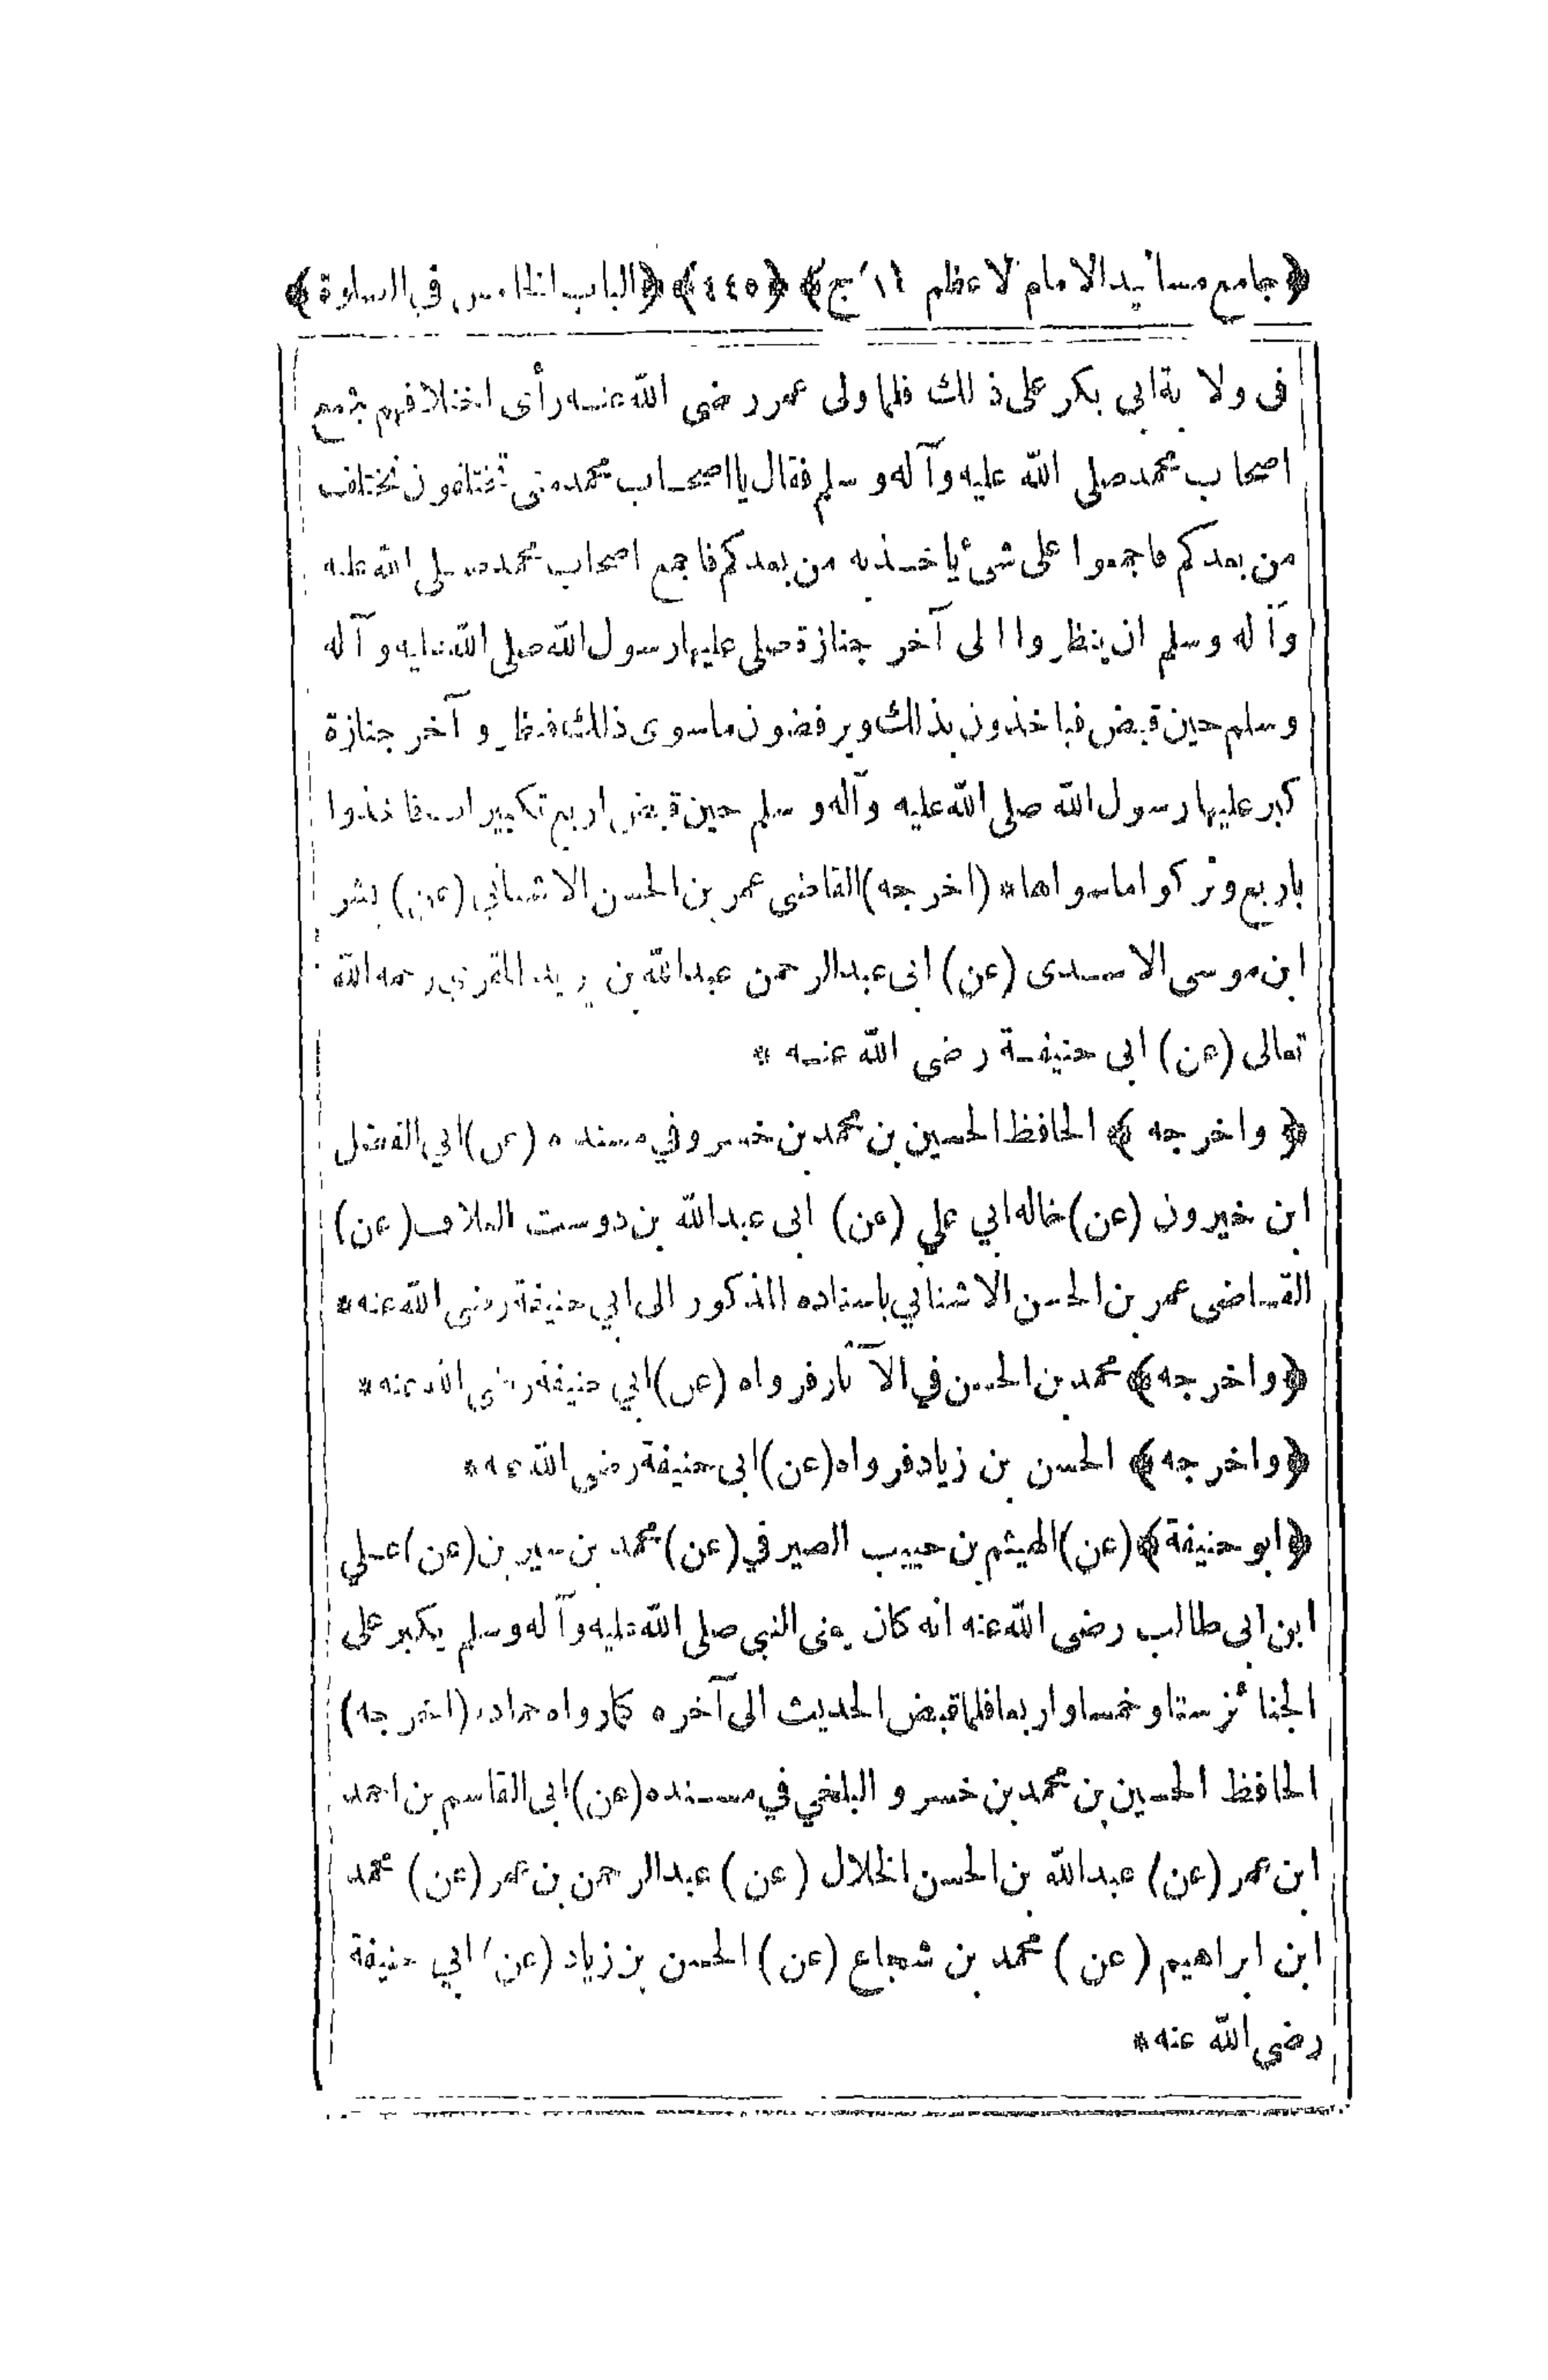 ﴿جامع مسانيد الامام الاعظم ج ١﴾ ﴿٤٤٥﴾ ﴿الباب الخامس في الصلوة﴾
فى ولاية ابي بكر على ذلك فلما ولى عمر رضى الله عنه رأى اختلافهم فجمع
اصحاب محمد صلى الله عليه وآله وسلم فقال يا اصحاب محمد متى تختلفون يختلف
من بعدكم فاجمعوا على شئ ياخذ به من بعدكم فاجمع اصحاب محمد صلى الله عليه
وآله وسلم ان ينظروا الى آخر جنازة صلى عليها رسول الله صلى الله عليه وآله
وسلم حين قبض فياخذون بذلك ويرفضون ماسوى ذلك فنظروا آخر جنازة
كبر عليها رسول الله صلى الله عليه وآله وسلم حين قبض اربع تكبيرات فاخذوا
باربع وتركوا ماسواها* (اخرجه) القاضى عمر بن الحسن الاشناني (عن) بشر
ابن موسى الاسدى (عن) ابى عبدالرحمن عبدالله بن يزيد المقرى رحمه الله
تعالى (عن) ابى حنيفة رضى الله عنه *
﴿واخرجه﴾ الحافظ الحسين بن محمد بن خسرو في مسنده (عن) ابي الفضل
ابن خيرون (عن) خاله ابي علي (عن) ابى عبدالله بن دوست العلاف (عن)
القاضى عمر بن الحسن الاشنانى باسناده المذكور الى ابي حنيفة رضى الله عنه*
﴿واخرجه﴾ محمد بن الحسن في الآثار فرواه (عن) ابي حنيفة رضى الله عنه*
﴿واخرجه﴾ الحسن بن زياد فرواه (عن) ابى حنيفة رضى الله عنه*
﴿ابو حنيفة﴾ (عن) الهيثم بن حبيب الصيرفي (عن) محمد بن سيرين (عن) علي
ابن ابى طالب رضى الله عنه انه كان يعنى النبي صلى الله عليه وآله وسلم يكبر على
الجنائز ستا وخمسا واربعا فلما قبض الحديث الى آخره كما رواه حماد* (اخرجه)
الحافظ الحسين بن محمد بن خسرو البلخي في مسنده (عن) ابى القاسم بن احمد
ابن عمر (عن) عبدالله بن الحسن الخلال (عن) عبدالرحمن بن عمر (عن) محمد
ابن ابراهيم (عن) محمد بن شجاع (عن) الحسن بن زياد (عن) ابي حنيفة
رضى الله عنه*